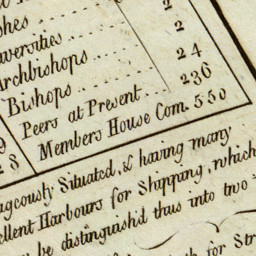 shes ... 2
versities ... 2
Archbishops ... 24
Bishops ... 236
Peers at Present ... 550
Members House Com.
9
28
ageously Situated, & having many
ellent Harbours for Shipping, which
be distinguish'd thus into two
for Str